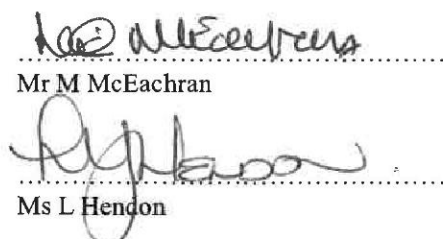 McEachran
Mr M McEachran
Hendon
Ms L Hendon